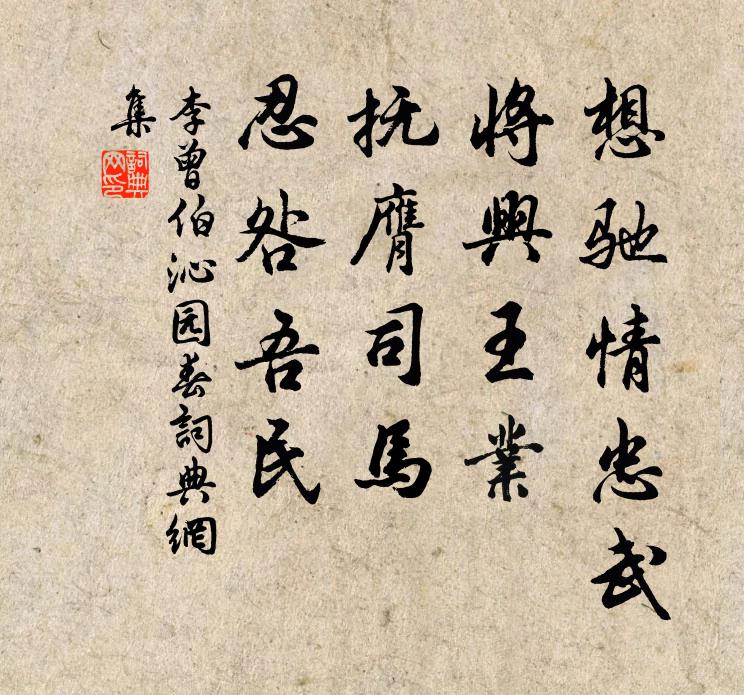 想驰情忠武
将興王業
抚膺司馬
忍咎吾民
李曾伯沁园春詞典網
集
詞典
网印